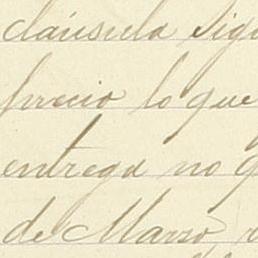 cláusula sigu
precio lo que
entrega no q
de Marzo